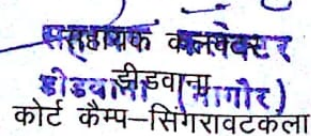 सहायक कलक्टर
डीडवाना (नागौर)
डीडवाना
कोर्ट कैम्प–सिंगरावटकला